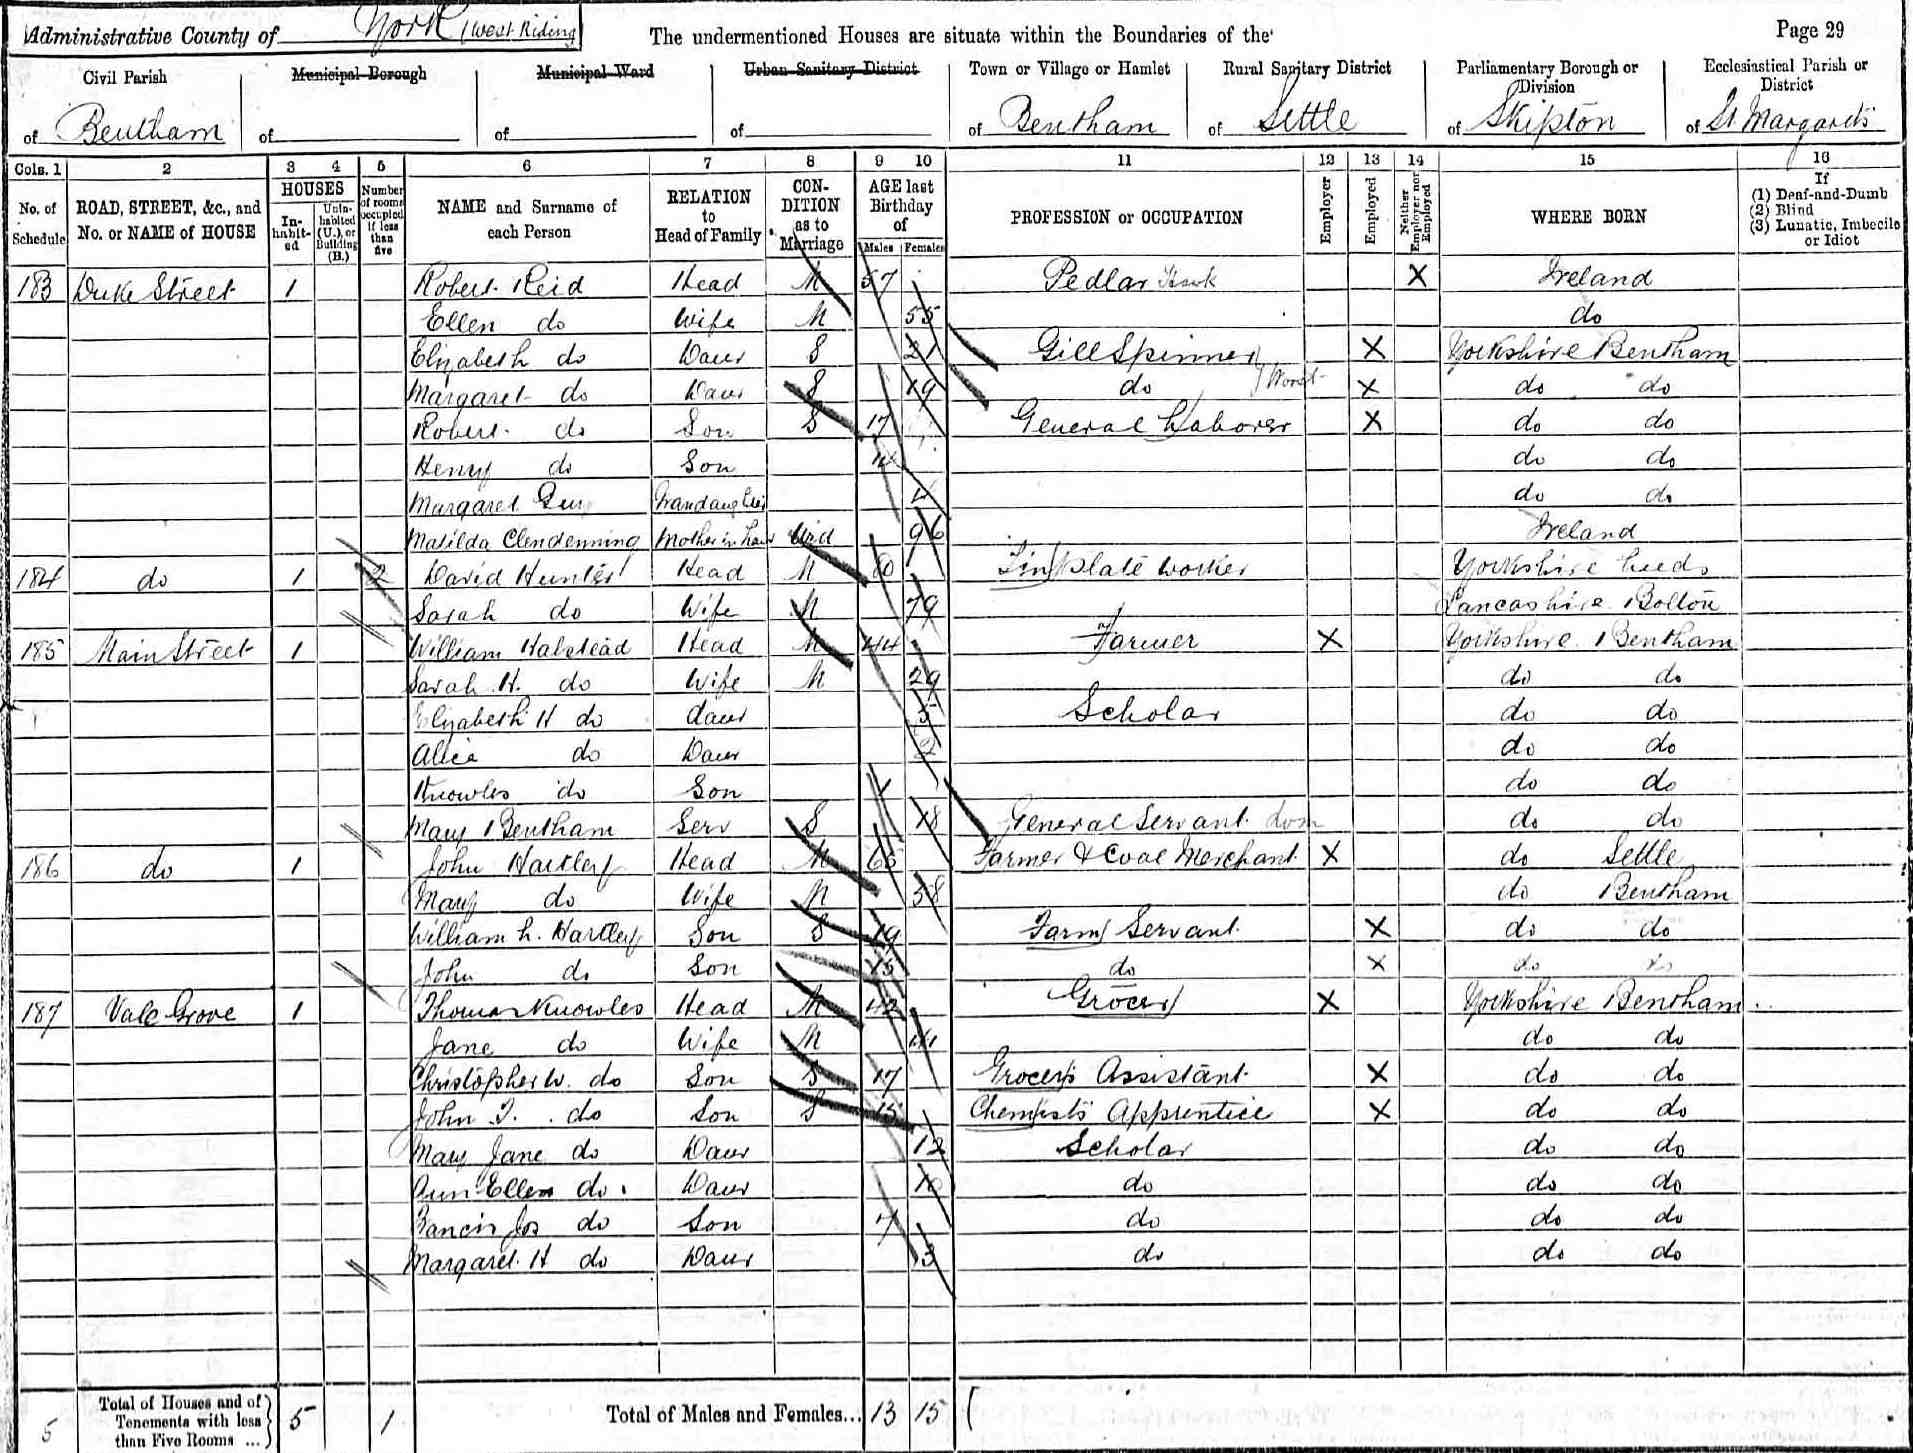 Administrative County of York (West Riding) The undermentioned Houses are situate within the Boundaries of the Page 29
Civil Parish Municipal Borough Municipal Ward Urban Sanitary District Town or Village or Hamlet Rural Sanitary District Parliamentary Borough or Division Ecclesiastical Parish or District
of Bentham of of of of Bentham of Settle of Skipton of St Margarets
Cols. 1 2 3 4 5 6 7 8 9 10 11 12 13 14 15 16
No. of Schedule ROAD, STREET, &c., and No. or NAME of HOUSE HOUSES Inhabited Uninhabited (U.), or Building (B.) Number of rooms occupied if less than five NAME and Surname of each Person RELATION to Head of Family CONDITION as to Marriage AGE last Birthday of Males Females PROFESSION or OCCUPATION Employer Employed Neither Employer nor Employed WHERE BORN If (1) Deaf-and-Dumb (2) Blind (3) Lunatic, Imbecile or Idiot
183 Duke Street 1 Robert Reid Head M 57 Pedlar Hawk X Ireland
Ellen do Wife M 55 do
Elizabeth do Daur S 21 Gill Spinner X Yorkshire Bentham
Margaret do Daur S 19 do Worst X do do
Robert do Son S 17 General Laborer X do do
Henry do Son 14 do do
Margaret Grandaughter 4 do do
Matilda Clendenning Mother in Law Wid 96 Ireland
184 do 1 2 David Hunter Head M 80 Tin plate worker Yorkshire Leeds
Sarah do Wife M 79 Lancashire Bolton
185 Main Street 1 William Halstead Head M 44 Farmer X Yorkshire Bentham
Sarah H. do Wife M 29 do do
Elizabeth H do daur 5 Scholar do do
Alice do Daur 2 do do
Knowles do Son 1 do do
Mary Bentham Serv S 18 General Servant Dom do do
186 do 1 John Hartley Head M 65 Farmer & Coal Merchant X do Settle
Mary do Wife M 58 do Bentham
William L. Hartley Son S 19 Farm Servant X do do
John do Son 15 do X do do
187 Vale Grove 1 Thomas Knowles Head M 42 Grocer X Yorkshire Bentham
Jane do Wife M 41 do do
Christopher W. do Son S 17 Grocer's Assistant X do do
John T. do Son S 15 Chemists Apprentice X do do
Mary Jane do Daur 12 Scholar do do
Ann Ellen do Daur 10 do do do
Francis Jos do Son 7 do do do
Margaret H do Daur 3 do do do
5 Total of Houses and of Tenements with less than Five Rooms ... 5 1 Total of Males and Females... 13 15